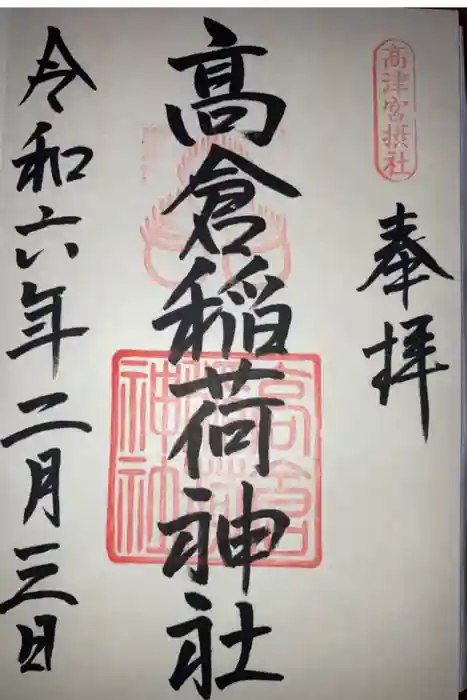 高津宮摂社
奉拝
高倉稲荷神社
高倉
神社
令和六年二月三日